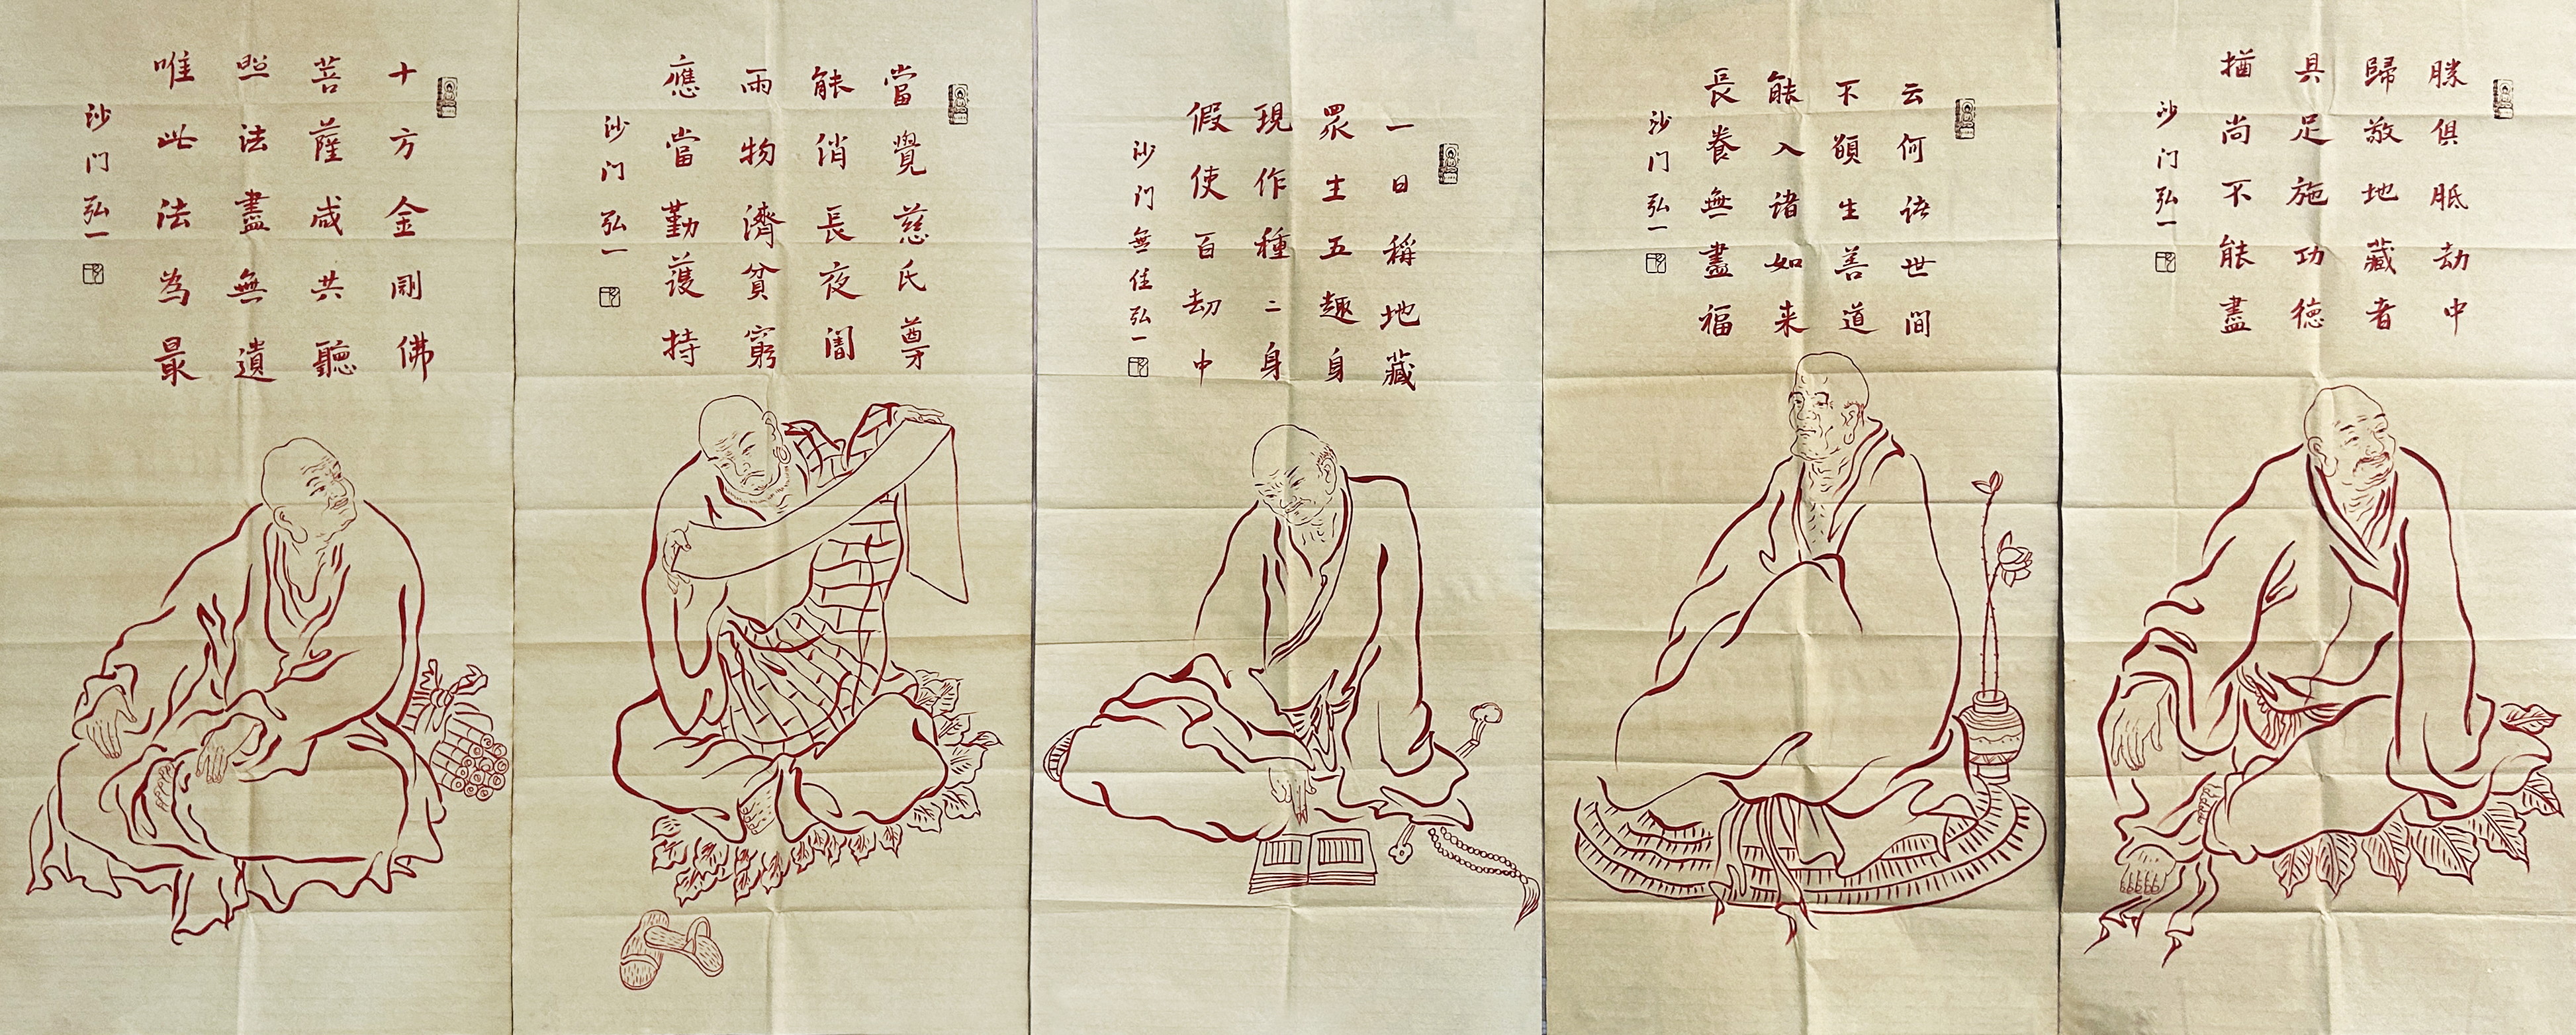 勝俱胝劫中
歸敬地藏者
具足施功德
猶尚不能盡
沙门弘一
云何语世間
不願生善道
能入诸如来
長養無盡福
沙门弘一
一日稱地藏
眾生五趣身
現作種二身
假使百劫中
沙门無佳弘一
當覺慈氏尊
能俏長夜闇
雨物濟貧窮
應當勤護持
沙门弘一
十方金剛佛
菩薩咸共聽
照法盡無遺
唯此法為最
沙门弘一